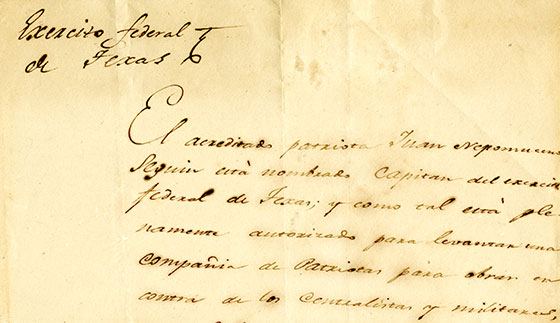 Exercito federal
de Texas
El acreditado patriota Juan Nepomuceno
Seguin está nombrado Capitan del exercito
federal de Texas; y como tal está ple
namente autorizado para levantar una
compañia de Patriotas para obrar en
contra de los Centralistas y militares,